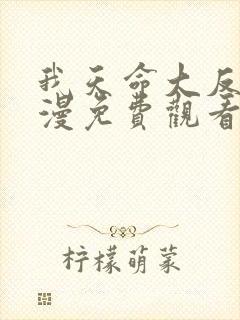 我天命大反
漫免費觀看
柠檬萌菜